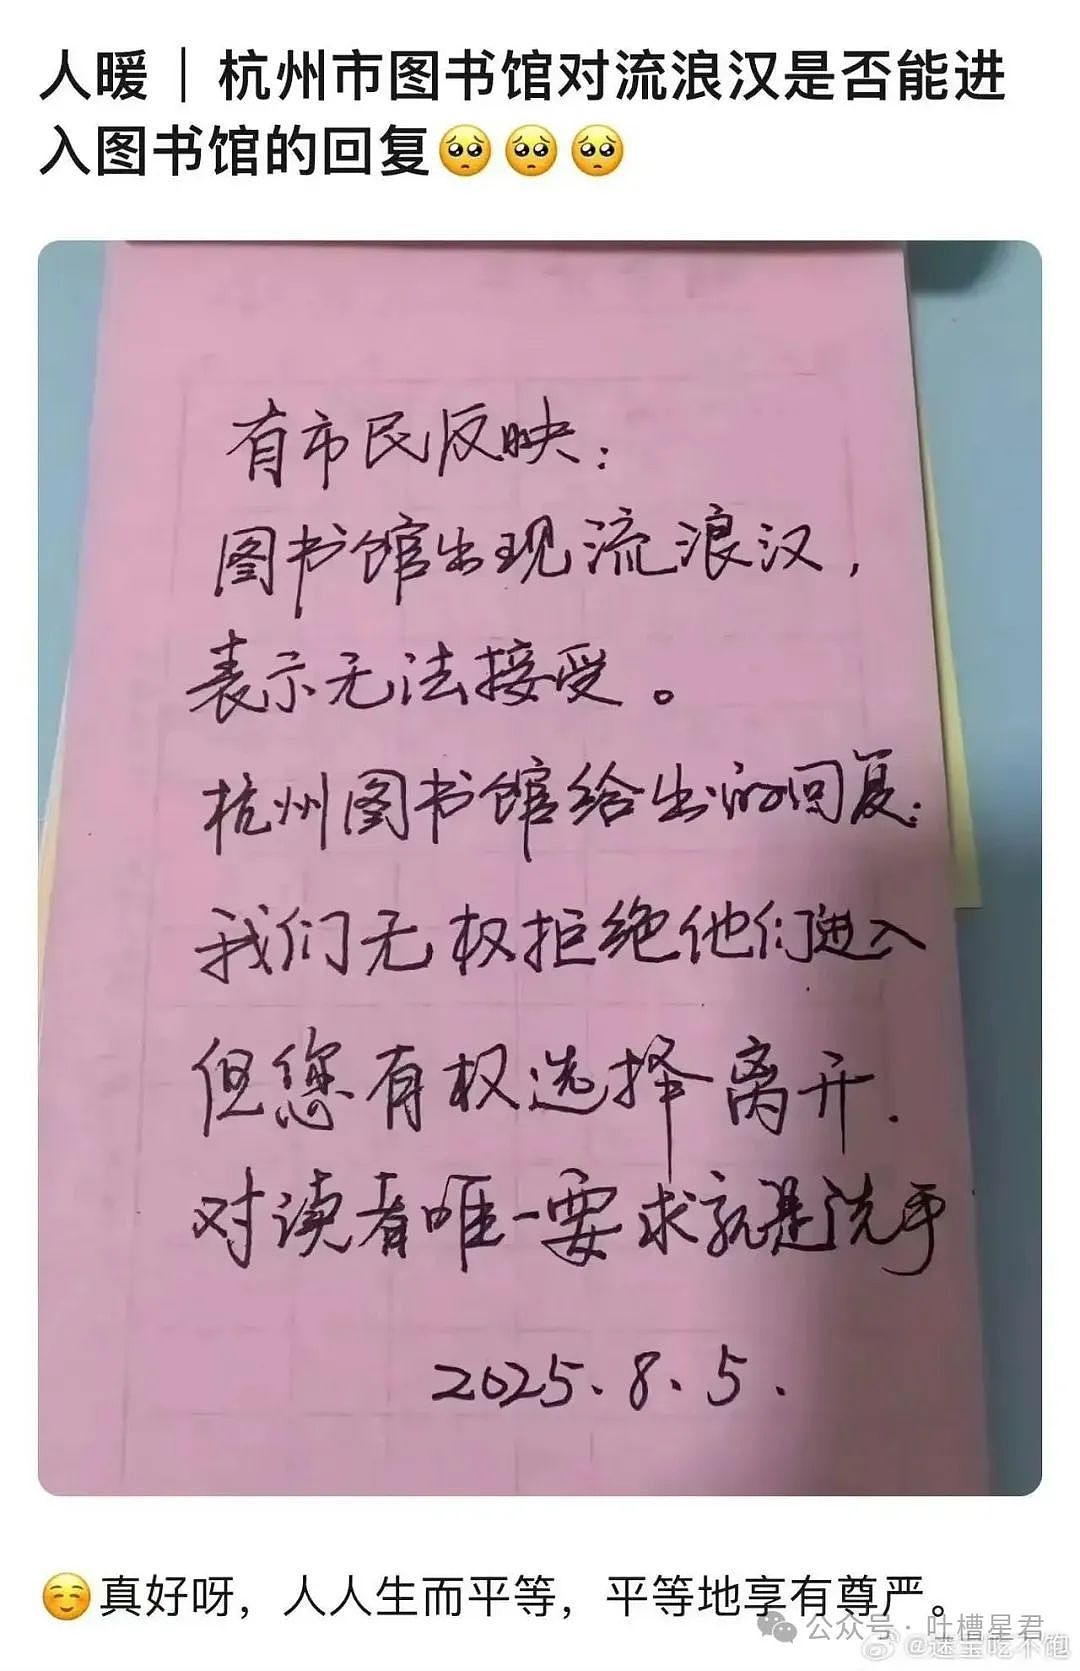 人暖｜杭州市图书馆对流浪汉是否能进
入图书馆的回复🥺🥺🥺
有市民反映：
图书馆出现流浪汉，
表示无法接受。
杭州图书馆给出的回复：
我们无权拒绝他们进入
但您有权选择离开.
对读者唯一要求就是洗手
2025.8.5.
☺️真好呀，人人生而平等，平等地享有尊严。
公众号·吐槽星君
@迷宝吃不饱